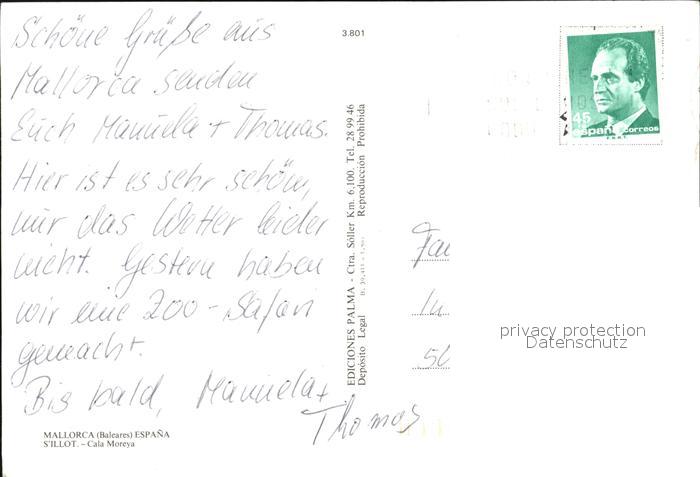 Schöne Grüße aus
Mallorca senden
Euch Manuela + Thomas.
Hier ist es sehr schön,
nur das Wetter leider
nicht. Gestern haben
wir eine Zoo-Safari
gemacht.
Bis bald, Manuela +
Thomas
MALLORCA (Baleares) ESPAÑA
S'ILLOT. - Cala Moreya
3.801
EDICIONES PALMA - Ctra. Sóller Km. 6,100. Tel. 28 99 46
Depósito Legal Reproducción Prohibida
45
españa correos
Fam
In
50
privacy protection
Datenschutz